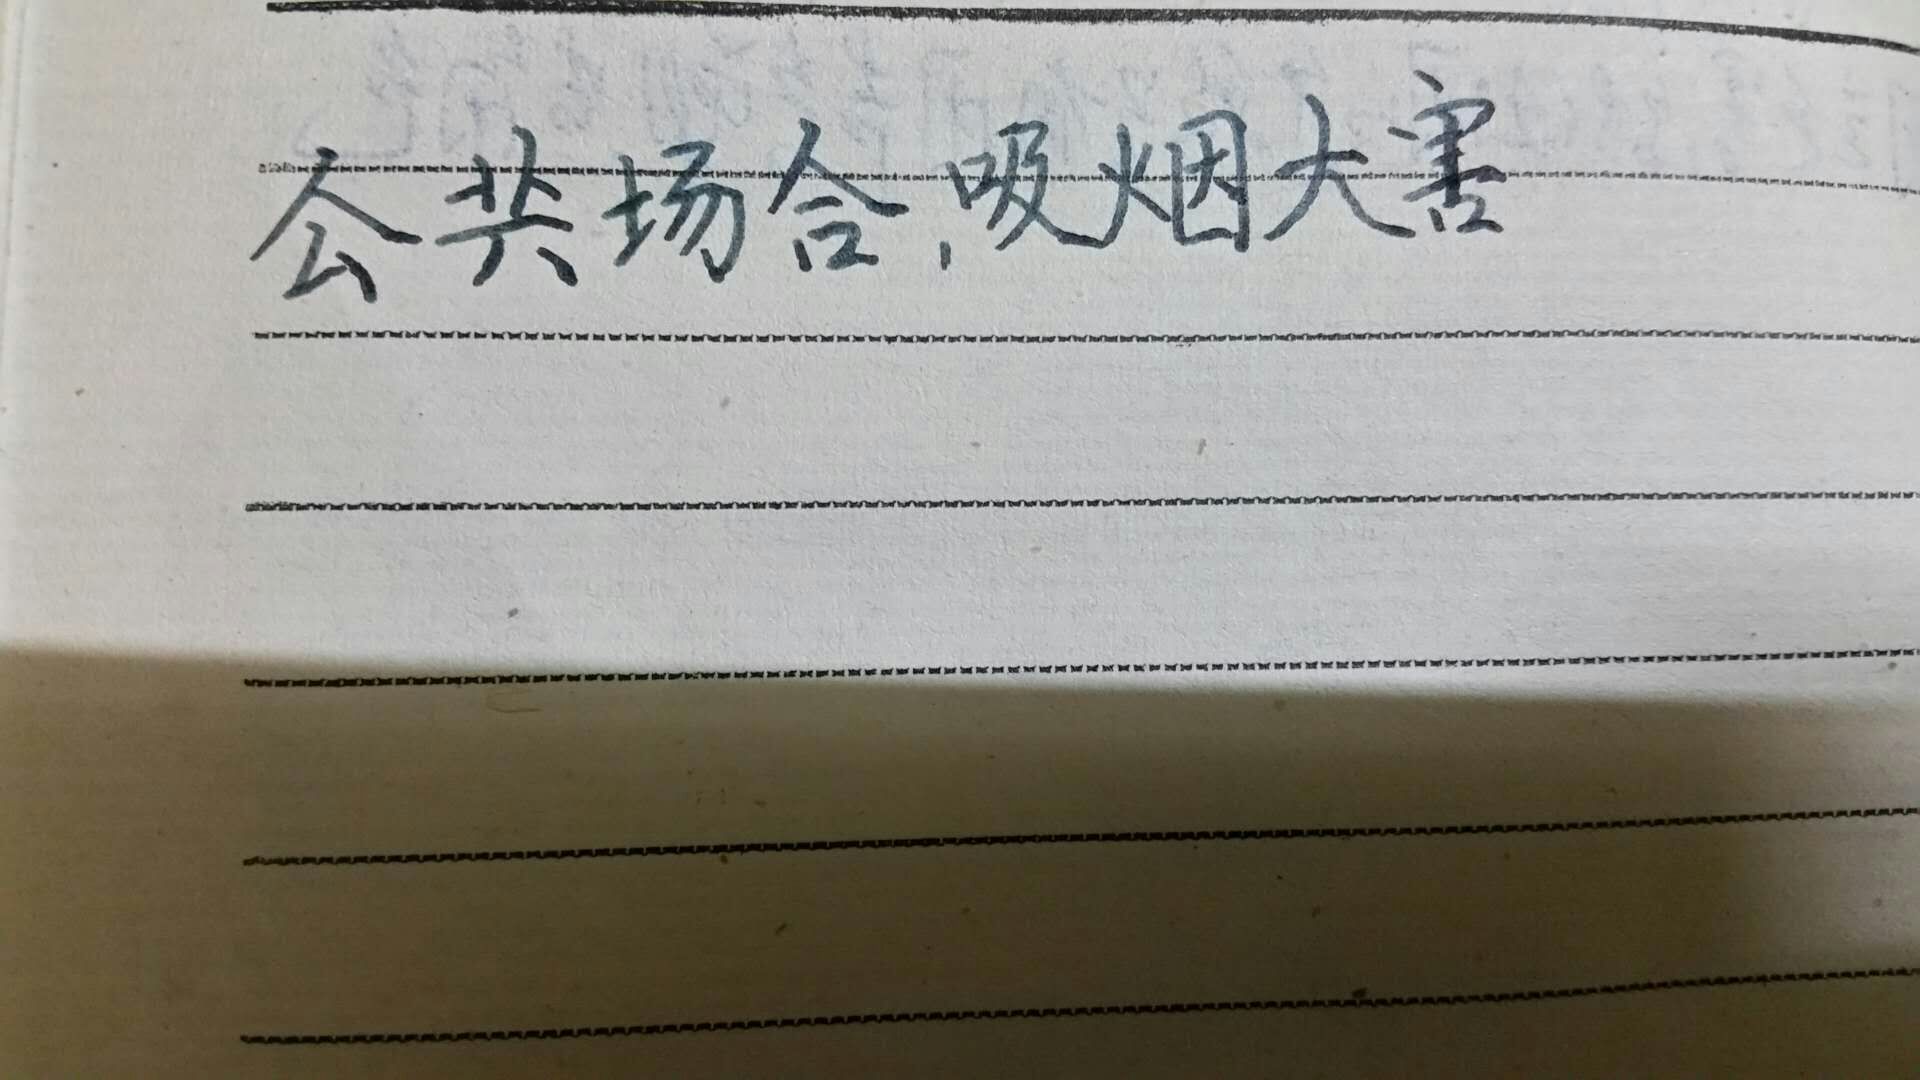 公共场合,吸烟大害